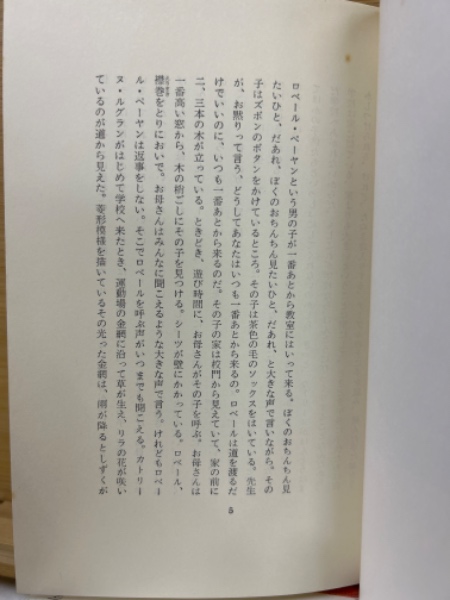 ロベール・ペーヤンという男の子が一番あとから教室にはいって来る。ぼくのおちんちん見
たいひと、だあれ、ぼくのおちんちん見たいひと、だあれ、と大きな声で言いながら。その
子はズボンのボタンをかけているところ。その子は茶色の毛のソックスをはいている。先生
が、お黙りって言う、どうしてあなたはいつも一番あとから来るの。ロベールは道を渡るだ
けでいいのに、いつも一番あとから来るのだ。その子の家は校門から見えていて、家の前に
二、三本の木が立っている。ときどき、遊び時間に、お母さんがその子を呼ぶ。お母さんは
一番高い窓から、木の梢ごしにその子を見つける。シーツが壁にかかっている。ロベール、
襟巻をとりにおいで。お母さんはみんなに聞こえるような大きな声で言う。けれどもロベー
ル・ペーヤンは返事をしない。そこでロベールを呼ぶ声がいつまでも聞こえる。カトリー
ヌ・ルグランがはじめて学校へ来たとき、運動場の金網に沿って草が生え、リラの花が咲い
ているのが道から見えた。菱形模様を描いているその光った金網は、雨が降るとしずくが
5